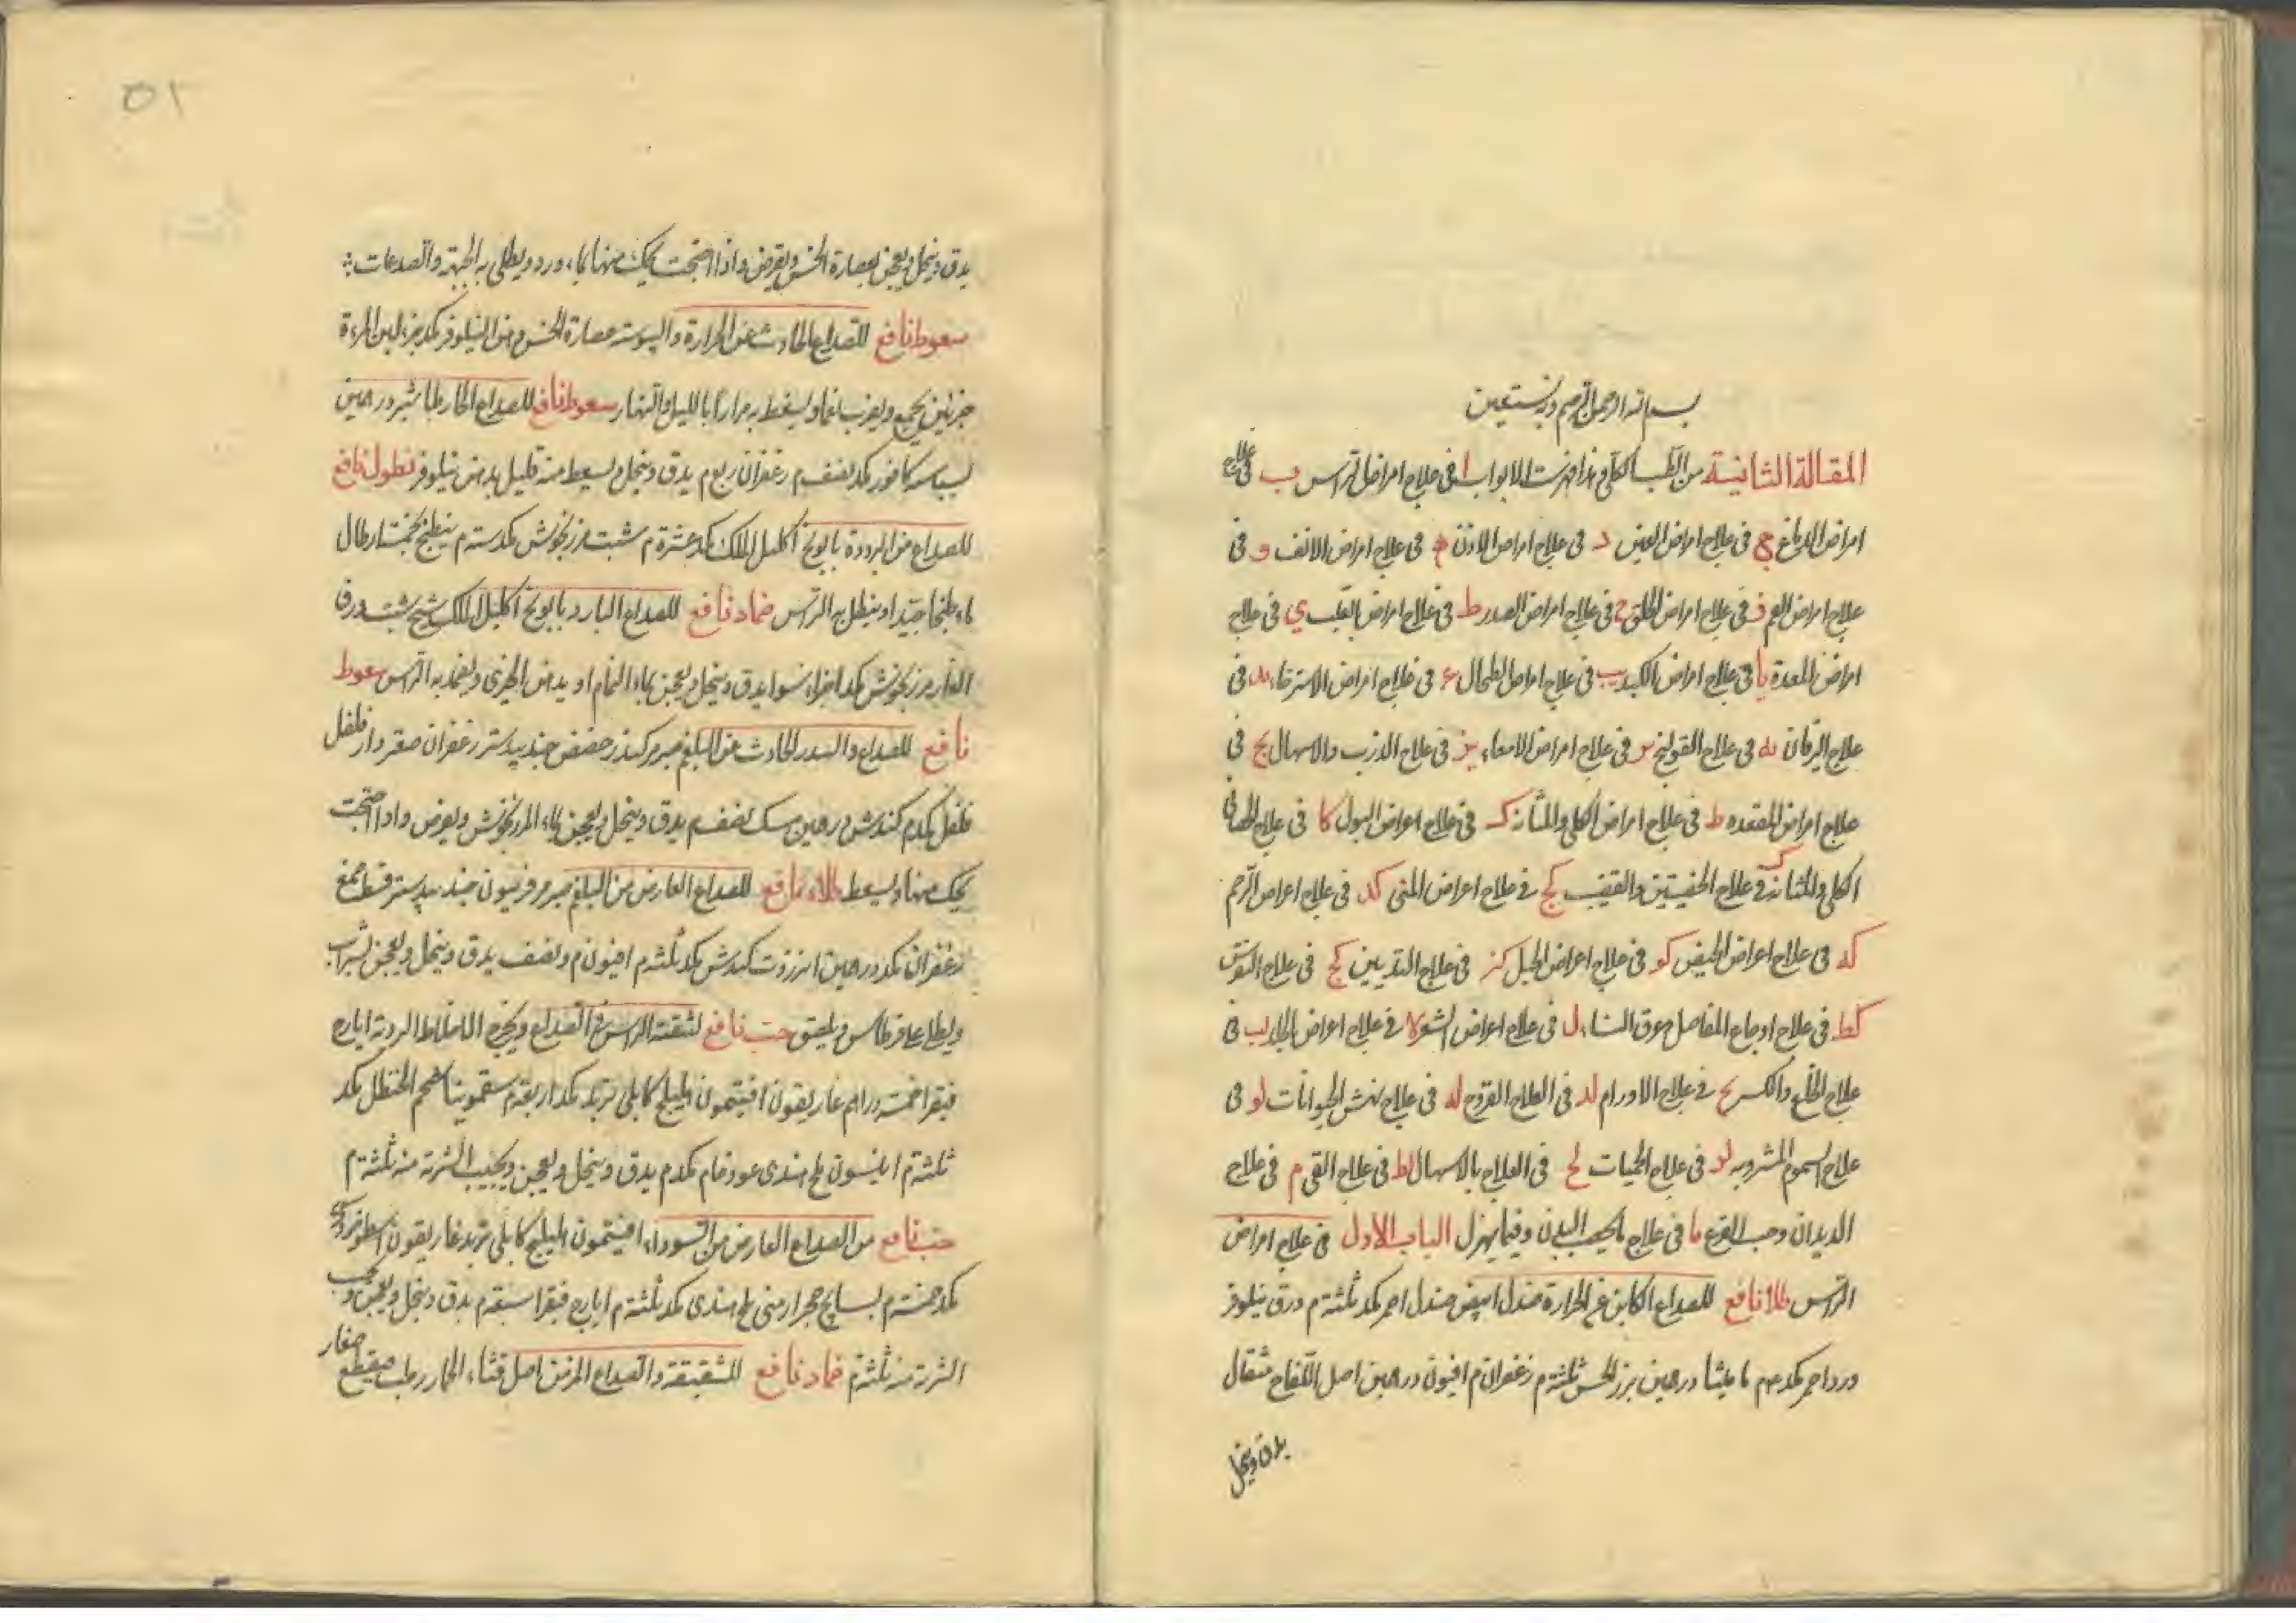 بسم الله الرحمن الرحيم وبه نستعين
المقالة الثانية من الطب الكلى وهذا فهرست الابواب ا فى علاج امراض الراس ب فى علاج
امراض الدماغ ج فى علاج امراض العين د فى علاج امراض الاذن ه فى علاج امراض الانف و فى
علاج امراض الفم ز فى علاج امراض الحلق ح فى علاج امراض الصدر ط فى علاج امراض القلب ي فى علاج
امراض المعدة يا فى علاج امراض الكبد يب فى علاج امراض الطحال يج فى علاج امراض الاسترخاء يد فى
علاج اليرقان يه فى علاج القولنج يو فى علاج امراض الامعاء يز فى علاج الذرب والاسهال يح فى
علاج امراض المقعده يط فى علاج امراض الكلى والمثانه ك فى علاج اعراض البول كا فى علاج
الكلى والمثانه كب فى علاج الخصيتين والقضيب كج فى علاج اعراض المنى كد فى علاج اعراض الرحم
كه فى علاج اعراض الحيض كو فى علاج اعراض الحبل كز فى علاج الثديين كح فى علاج النقرس
كط فى علاج اوجاع المفاصل وعرق النساء ل فى علاج اعراض الشعر لا فى علاج اعراض الجلد لب فى
علاج الخلع والكسر لج فى علاج الاورام لد فى العلاج القروح له فى علاج نهش الحيوانات لو فى
علاج السموم المشروبه لز فى علاج الحميات لح فى العلاج بالاسهال لط فى علاج القى م فى علاج
الديدان وحب القرع ما فى علاج ما يخصب البدن وفيما يهزل الباب الاول فى علاج امراض
الراس طلا نافع للصداع الكاين عن الحرارة صندل ابيض صندل احمر مكد ثلثة م ورق نيلوفر
ورد احمر مكد م ماميثا درهمين بزر الخس ثلثة م زعفران م افيون درهمين اصل اللفاح مثقال
يدق وينخل
٥٢
يدق وينخل ويعجن بعصارة الخس ويقرض واذا احتجت يحك منها بماء ورد ويطلى به الجبهة والصدغات
سعوط نافع للصداع الحادث عن الحرارة واليبوسة عصارة الخس دهن النيلوفر مكد جزء لبن المرءة
جزئين يجمع ويضرب نعما ويسعط به مرارا بالليل والنهار سعوط نافع للصداع الحار طباشير درهمين
بسباسه كافور مكد نصف م زعفران ربع م يدق وينخل ويسعط منه قليل بدهن نيلوفر نطول نافع
للصداع من البرودة بابونج اكليل الملك مكد عشرة م شبت مرزنجوش مكد ستة م يطبخ بخمسة ارطال
ماء طبخا جيدا وينطل به الراس ضماد نافع للصداع البارد بابونج اكليل الملك شيح شبت ورق
الغار مرزنجوش مكد اجزاء سوا يدق وينخل ويعجن بماء النمام او بدهن الخيرى ويضمد به الراس سعوط
نافع للصداع والسدر الحادث عن البلغم صبر مر كندر حضض جندبيدستر زعفران صعتر دار فلفل
فلفل مكد م كندش درهمين مسك نصف م يدق وينخل ويعجن بماء المرزنجوش ويقرض واذا احتجت
يحك منها ويسعط طلاء نافع للصداع العارض من البلغم صبر مر فربيون جندبيدستر قسط صمغ
زعفران مكد درهمين انزروت كندش مكد ثلثة م افيون م ونصف يدق وينخل ويعجن بشراب
ويطلى على قرطاس ويلصق حب نافع لتنقية الراس من الصداع ويخرج الاخلاط الردية ايارج
فيقرا خمسة دراهم غاريقون افيتمون اهليلج كابلى تربد مكد اربعة م سقمونيا شحم الحنظل مكد
ثلثة م انيسون ملح هندى عود خام مكد م يدق وينخل ويعجن ويحبب الشربة منه ثلثة م
حب نافع من الصداع العارض من السوداء افيتمون اهليلج كابلى تربد غاريقون اسطوخودوس
مكد خمسة م بسبايج حجر ارمنى ملح هندى مكد ثلثة م ايارج فيقرا سبعة م يدق وينخل ويعجن ويحبب
الشربة منه ثلثة م ضماد نافع للشقيقة والصداع المزمن اصل قثاء الحمار رطب مقطع صغار